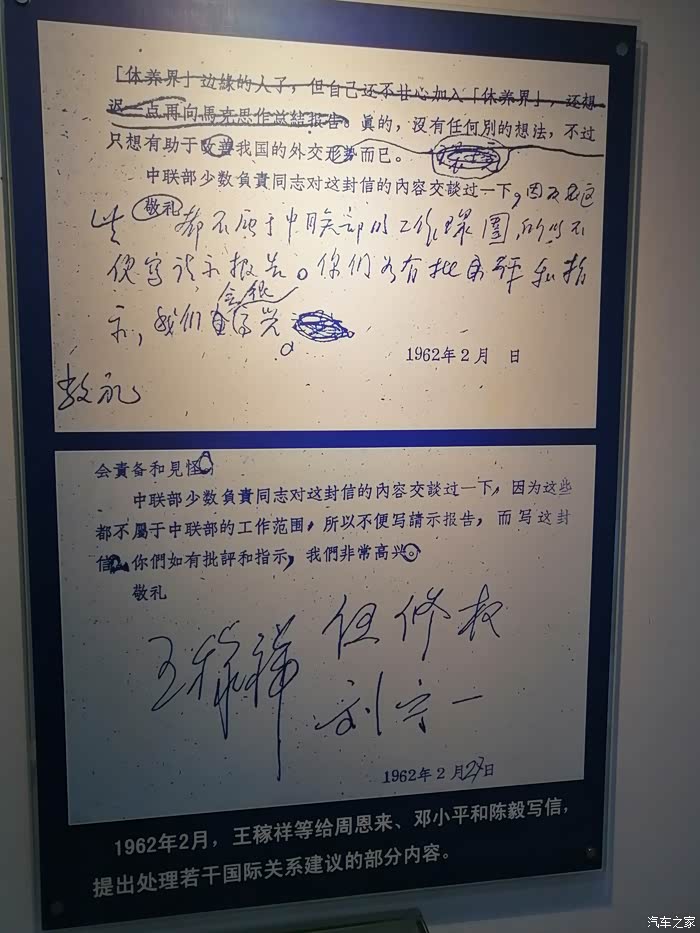 「休养界」边緣的人了，但自己还不甘心加入「休养界」，还想
迟一点再向馬克思作总結报告。眞的，沒有任何別的想法，不过
只想有助于改善我国的外交形势而已。
中联部少数負責同志对这封信的內容交談过一下，因为这
些 敬礼 都不属于中联部的工作范圍，所以不
便写请示报告。你们如有批评和指
示，我们会很高兴
1962年2月 日
敬礼
会責备和見怪
中联部少数負責同志对这封信的內容交談过一下，因为这些
都不屬于中联部的工作范围，所以不便写請示报告，而写这封
信。你們如有批評和指示，我們非常高兴。
敬礼
王稼祥 伍修权
刘宁一
1962年2月27日
1962年2月，王稼祥等给周恩来、邓小平和陈毅写信，
提出处理若干国际关系建议的部分内容。
汽车之家